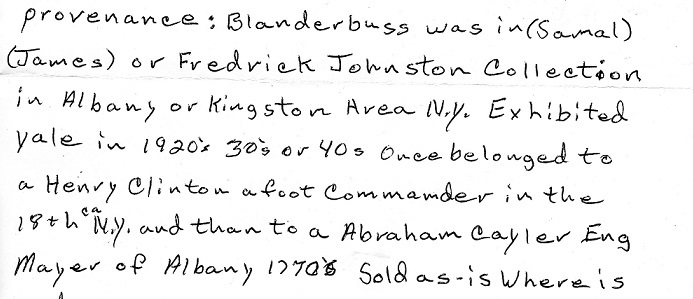 provenance: Blanderbuss was in (Samal)
(James) or Fredrick Johnston Collection
in Albany or Kingston Area N.Y. Exhibited
yale in 1920's 30's or 40s Once belonged to
a Henry Clinton a foot Commamder in the
18th ca N.Y. and than to a Abraham Cayler Eng
Mayer of Albany 1770's Sold as-is Where is